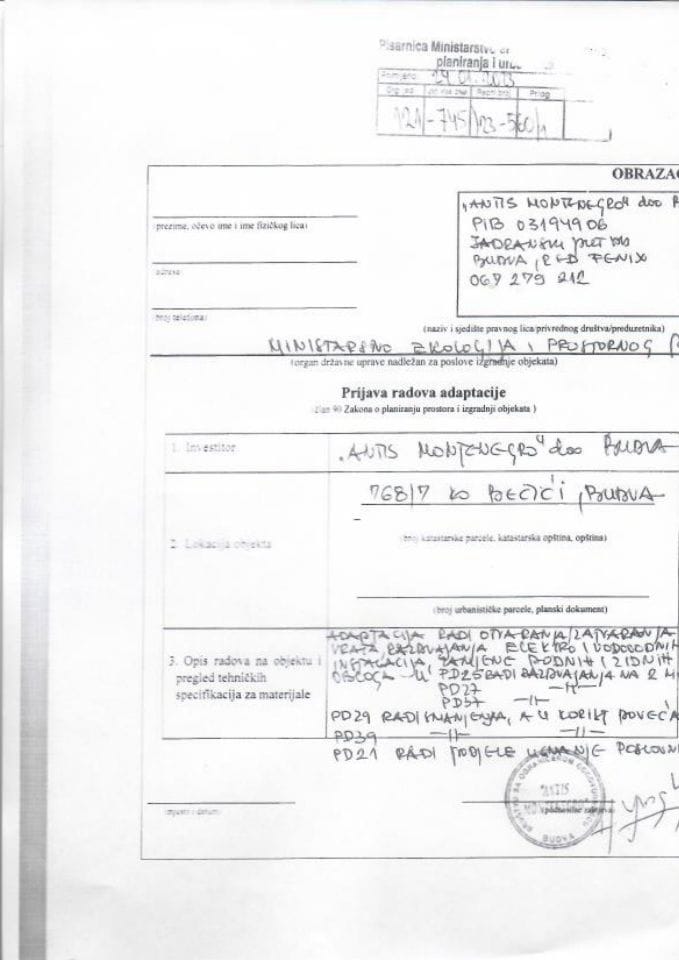 Pisarnica Ministarstvo
planiranja i
Primljeno: 24 01. 2023
Org. jed. Redni broj Prilog
121 -745/ 23-560/1
OBRAZA
„ANTIS MONTENEGRO“ doo
PIB 03194906
JADRANSKI PUT bb
BUDVA, RED FENIX
067 279 212
prezime, očevo ime i ime fizičkog lica)
adresa
broj telefona)
(naziv i sjedište pravnog lica/privrednog društva/preduzetnika)
MINISTARSTVO EKOLOGIJA I PROSTORNOG
(organ državne uprave nadležan za poslove izgradnje objekata)
Prijava radova adaptacije
član 90 Zakona o planiranju prostora i izgradnji objekata )
1. Investitor „ANTIS MONTENEGRO“ doo BUDVA
768/7 KO BEČIĆI, BUDVA
2. Lokacija objekta
(broj katastarske parcele, katastarska opština, opština)
(broj urbanističke parcele, planski dokument)
3. Opis radova na objektu i
pregled tehničkih
specifikacija za materijale
ADAPTACIJA RADI OTVARANJA/ZATVARANJA
VRATA, RAZDVAJANJA ELEKTRO I VODOVODNIH
INSTALACIJA, ZAMJENE PODNIH I ZIDNIH
OBLOGA - U PD25 RADI RAZDVAJANJA NA 2
PD27 -||-
PD37 -||-
PD29 RADI SMANJENJA, A U KORIST POVEĆA
PD39 -||- -||-
PD21 RADI PODJELE POSLOVNI
(mjesto i datum)
DRUŠTVO SA OGRANIČENOM ODGOVORNOŠĆU
"ANTIS
MONTENEGRO"
BUDVA